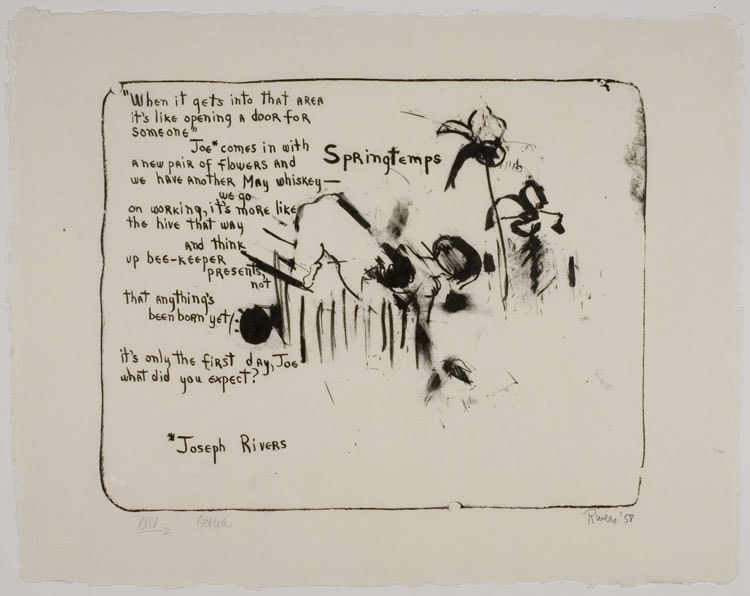 "When it gets into that area
it's like opening a door for
someone"
Joe* comes in with
a new pair of flowers and
we have another May whiskey—
we go
on working, it's more like
the hive that way
and think
up bee-keeper
presents,
not
that anything's
been born yet/
it's only the first day, Joe
what did you expect?
Springtemps
*Joseph Rivers
O'Hara
Rivers '58